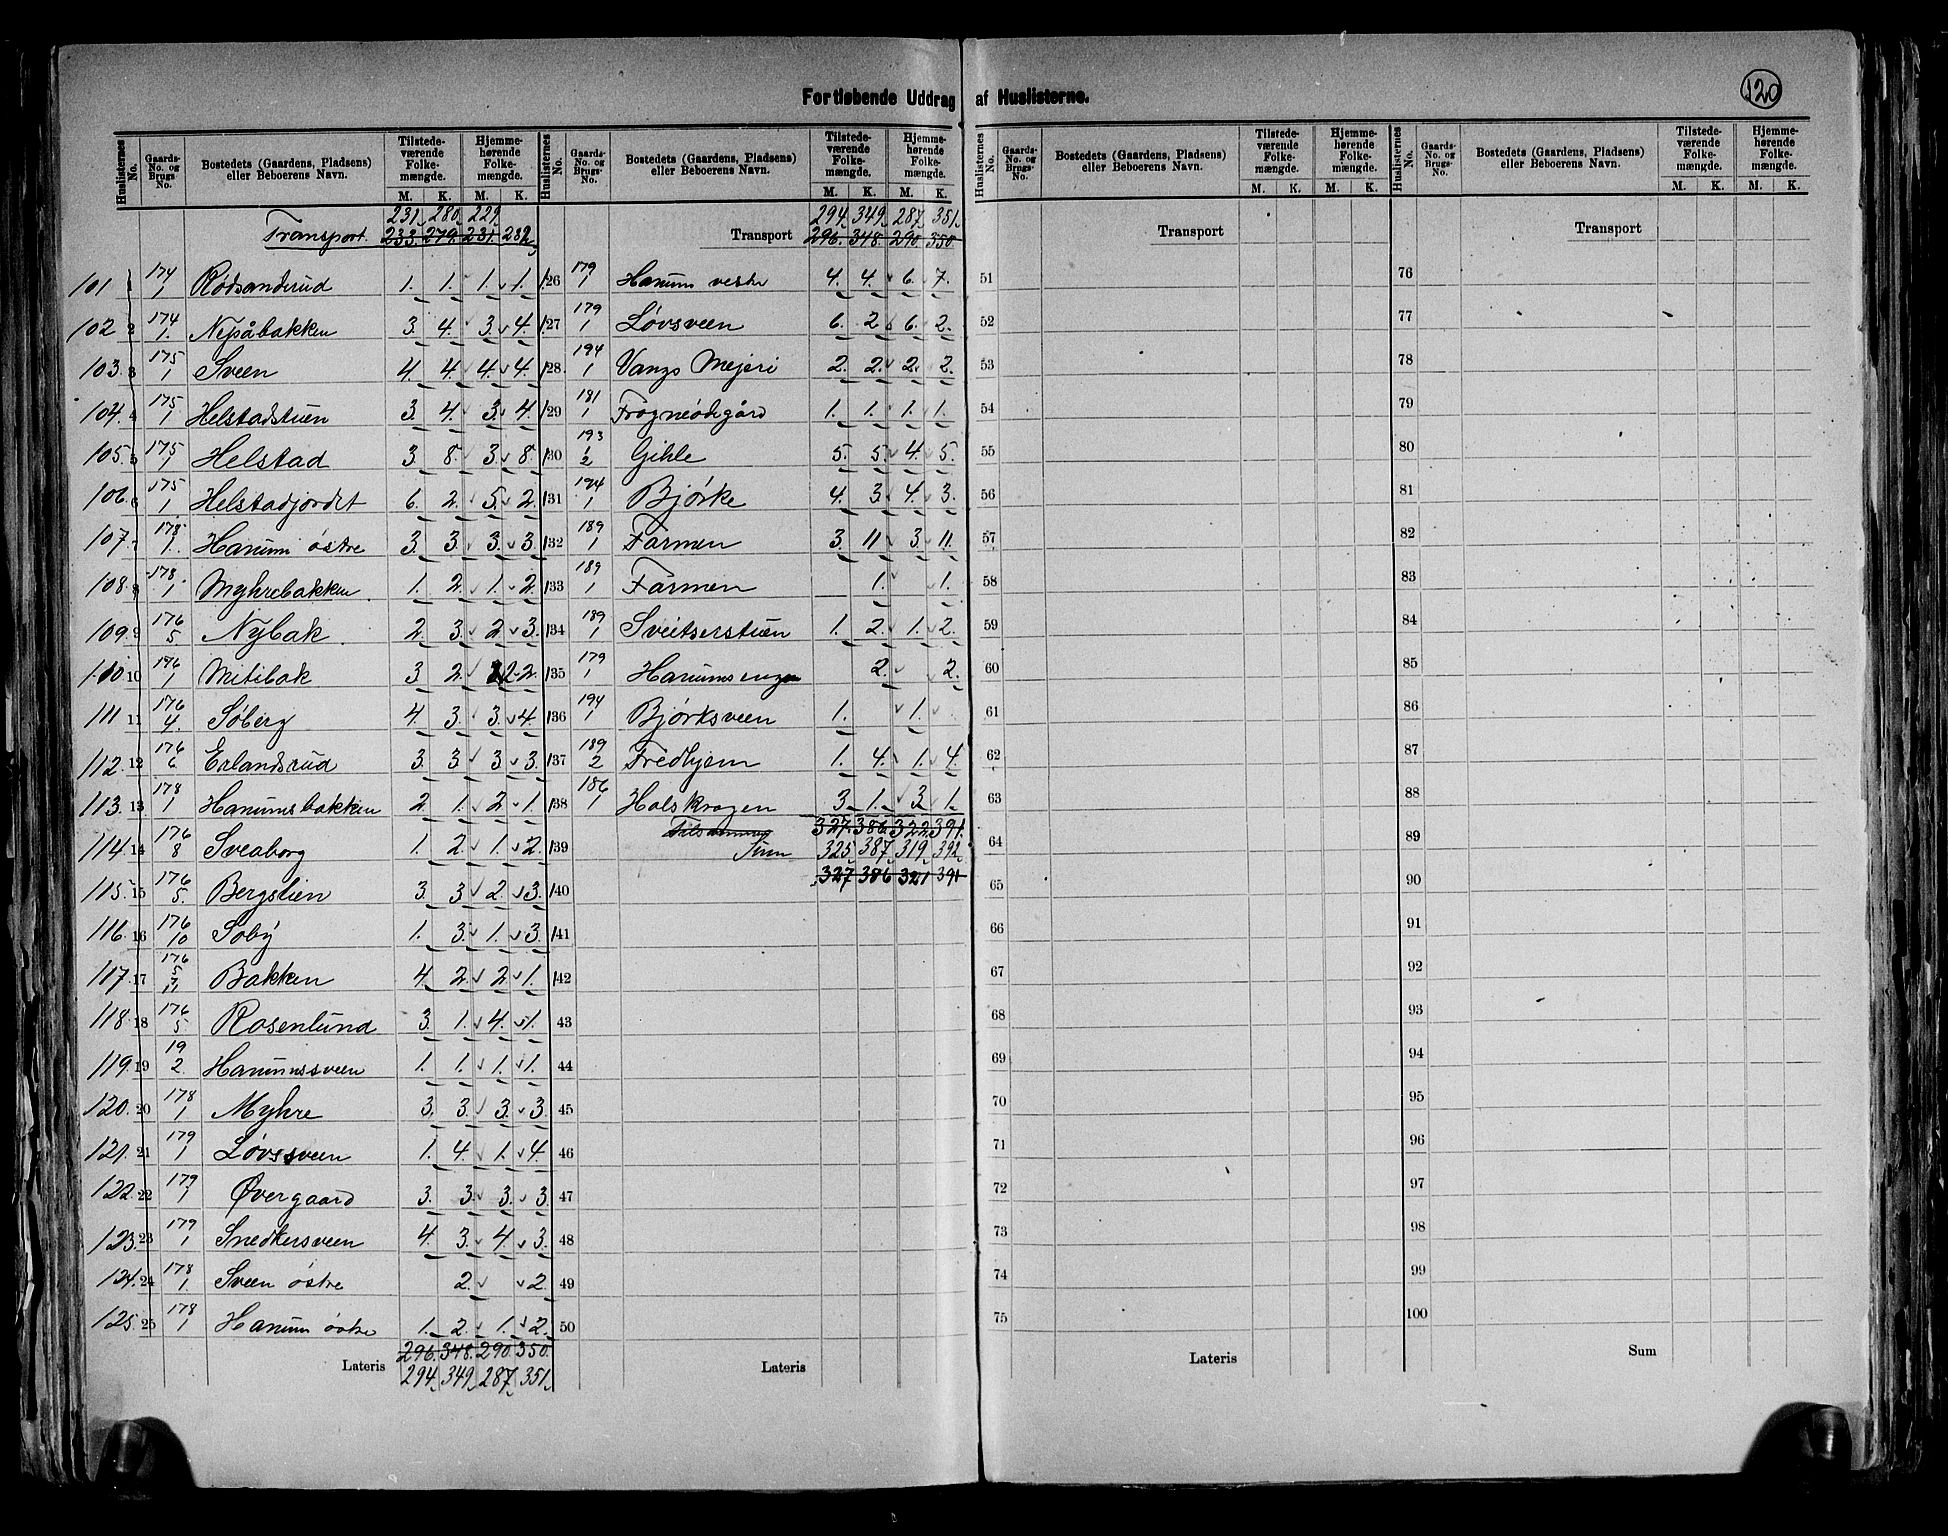 Fortløbende Uddrag af Huslisterne.
120
Huslisternes No. | Gaards-No. og Brugs-No. | Bostedets (Gaardens, Pladsens) eller Beboerens Navn. | Tilstedeværende Folkemængde. M. K. | Hjemmehørende Folkemængde. M. K.
231. 280. 229.
Transport. 233. 279. 231. 282.
101 1 174/1 Rødsanderud 1. 1. 1. 1.
102 2 174/1. Nepåbakken 3. 4. 3. 4.
103. 3 175/1 Sveen 4. 4. 4. 4.
104. 4 175/1 Helstadstuen 3. 4. 3. 4.
105. 5 175/1 Helstad 3. 8. 3. 8.
106. 6 175/1 Helstadjordet 6. 2. 5. 2.
107. 7 178/1. Hanum østre 3. 3. 3. 3.
108. 8 178./1 Myhrebakken 1. 2. 1. 2.
109. 9 176/5 Nybak 2. 3. 2. 3.
110. 10 176/1 Mitibak 3 2. 2. 2.
111 11 176/4. Søberg 4. 3. 3. 4.
112. 12 176/6 Erlandsrud 3. 3. 3. 3.
113. 13 178/1 Hanumsbakken 2. 1. 2. 1.
114. 14 176/8 Sveaborg 1. 2. 1. 2.
115. 15 176/5. Bergstien 3. 3. 2. 3.
116. 16 176/10 Soby 1. 3. 1. 3.
117. 17 176/5 11 Bakken 4. 2. 2. 1.
118. 18 176/5 Rosenlund 3. 1. 4. 1.
119. 19 19/2. Hanumssveen 1. 1. 1. 1.
120. 20 178/1 Myhre 3. 3. 3. 3.
121. 21 179/1 Løvssveen 1. 4. 1. 4.
122. 22 179/1 Øvergaard 3. 3. 3. 3.
123. 23 179/1 Snedkersveen 4. 3. 4. 3.
124. 24 178/1. Sveen østre 2. 2.
125. 25 178/1 Hanum østre 1. 2. 1. 2.
296. 348. 290. 350.
Lateris 294. 349. 287. 351.
Huslisternes No. | Gaards-No. og Brugs-No. | Bostedets (Gaardens, Pladsens) eller Beboerens Navn. | Tilstedeværende Folkemængde. M. K. | Hjemmehørende Folkemængde. M. K.
294. 349. 287. 351.
Transport 296. 348. 290. 350
126 179/1 Hanum vestre 4. 4. 6. 7.
127 179/1 Løvsveen 6. 2 6. 2.
128. 194/1 Vangs Mejeri 2. 2. 2. 2.
129 181/1 Frogneødegård 1. 1. 1. 1.
130 193/1 2 Gihle 5. 5. 4. 5.
131 194/1 Bjørke 4. 3. 4. 3.
132 189/1 Farmen 3. 11. 3. 11.
133 189/1 Farmen 1. 1.
134 189/1 Sveitserstuen 1. 2. 1. 2.
135 179/1 Hanumsengen 2. 2.
136 194/1 Bjørksveen 1. 1.
137 189/2 Fredhjem 1. 4. 1. 4.
138 186/1 Halskragen 3. 1. 3. 1.
Tilsammen 327. 386. 322. 391.
139 Sum 325. 387. 319. 392.
327 386 321 391
140
141
142
43
44
45
46
47
48
49
50
Lateris
Huslisternes No. | Gaards-No. og Brugs-No. | Bostedets (Gaardens, Pladsens) eller Beboerens Navn. | Tilstedeværende Folkemængde. M. K. | Hjemmehørende Folkemængde. M. K.
Transport
51
52
53
54
55
56
57
58
59
60
61
62
63
64
65
66
67
68
69
70
71
72
73
74
75
Lateris
Huslisternes No. | Gaards-No. og Brugs-No. | Bostedets (Gaardens, Pladsens) eller Beboerens Navn. | Tilstedeværende Folkemængde. M. K. | Hjemmehørende Folkemængde. M. K.
Transport
76
77
78
79
80
81
82
83
84
85
86
87
88
89
90
91
92
93
94
95
96
97
98
99
100
Sum